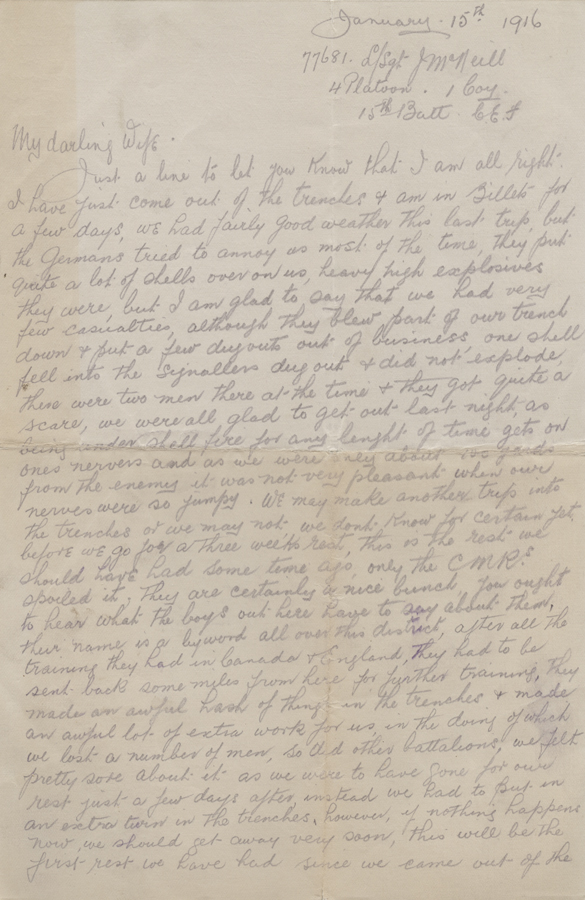 January. 15th 1916
77681. L/Sgt J McNeill
4 Platoon. 1 Coy.
15th Batt. C.E.F
My darling Wife.
Just a line to let you know that I am all right.
I have just come out of the trenches & am in Billets for
a few days, we had fairly good weather this last trip, but
the Germans tried to annoy us most of the time, they put
quite a lot of shells over on us, heavy high explosives
they were, but I am glad to say that we had very
few casualties, although they blew part of our trench
down & put a few dugouts out of business one shell
fell into the Signallers dug out & did not explode,
there were two men there at the time & they got quite a
scare, we were all glad to get out last night, as
being under shell fire for any lenght of time gets on
ones nervers and as we were only about yards
from the enemy it was not very pleasant when our
nerves were so jumpy. We may make another trip into
the trenches or we may not we dont know for certain yet,
before we go for a three weeks rest, this is the rest we
should have had some time ago, only the C M Rs
spoiled it, They are certainly a nice bunch, you ought
to hear what the boys out here have to say about them,
their name is a byword all over this district, after all the
training they had in Canada & England, they had to be
sent back some miles from here for further training, they
made an awful hash of things in the trenches & made
an awful lot of extra work for us, in the doing of which
we lost a number of men, so did other battalions, we felt
pretty sore about it as we were to have gone for our
rest just a few days after, instead we had to put in
an extra turn in the trenches, however, if nothing happens
now, we should get away very soon, this will be the
first rest we have had since we came out of the